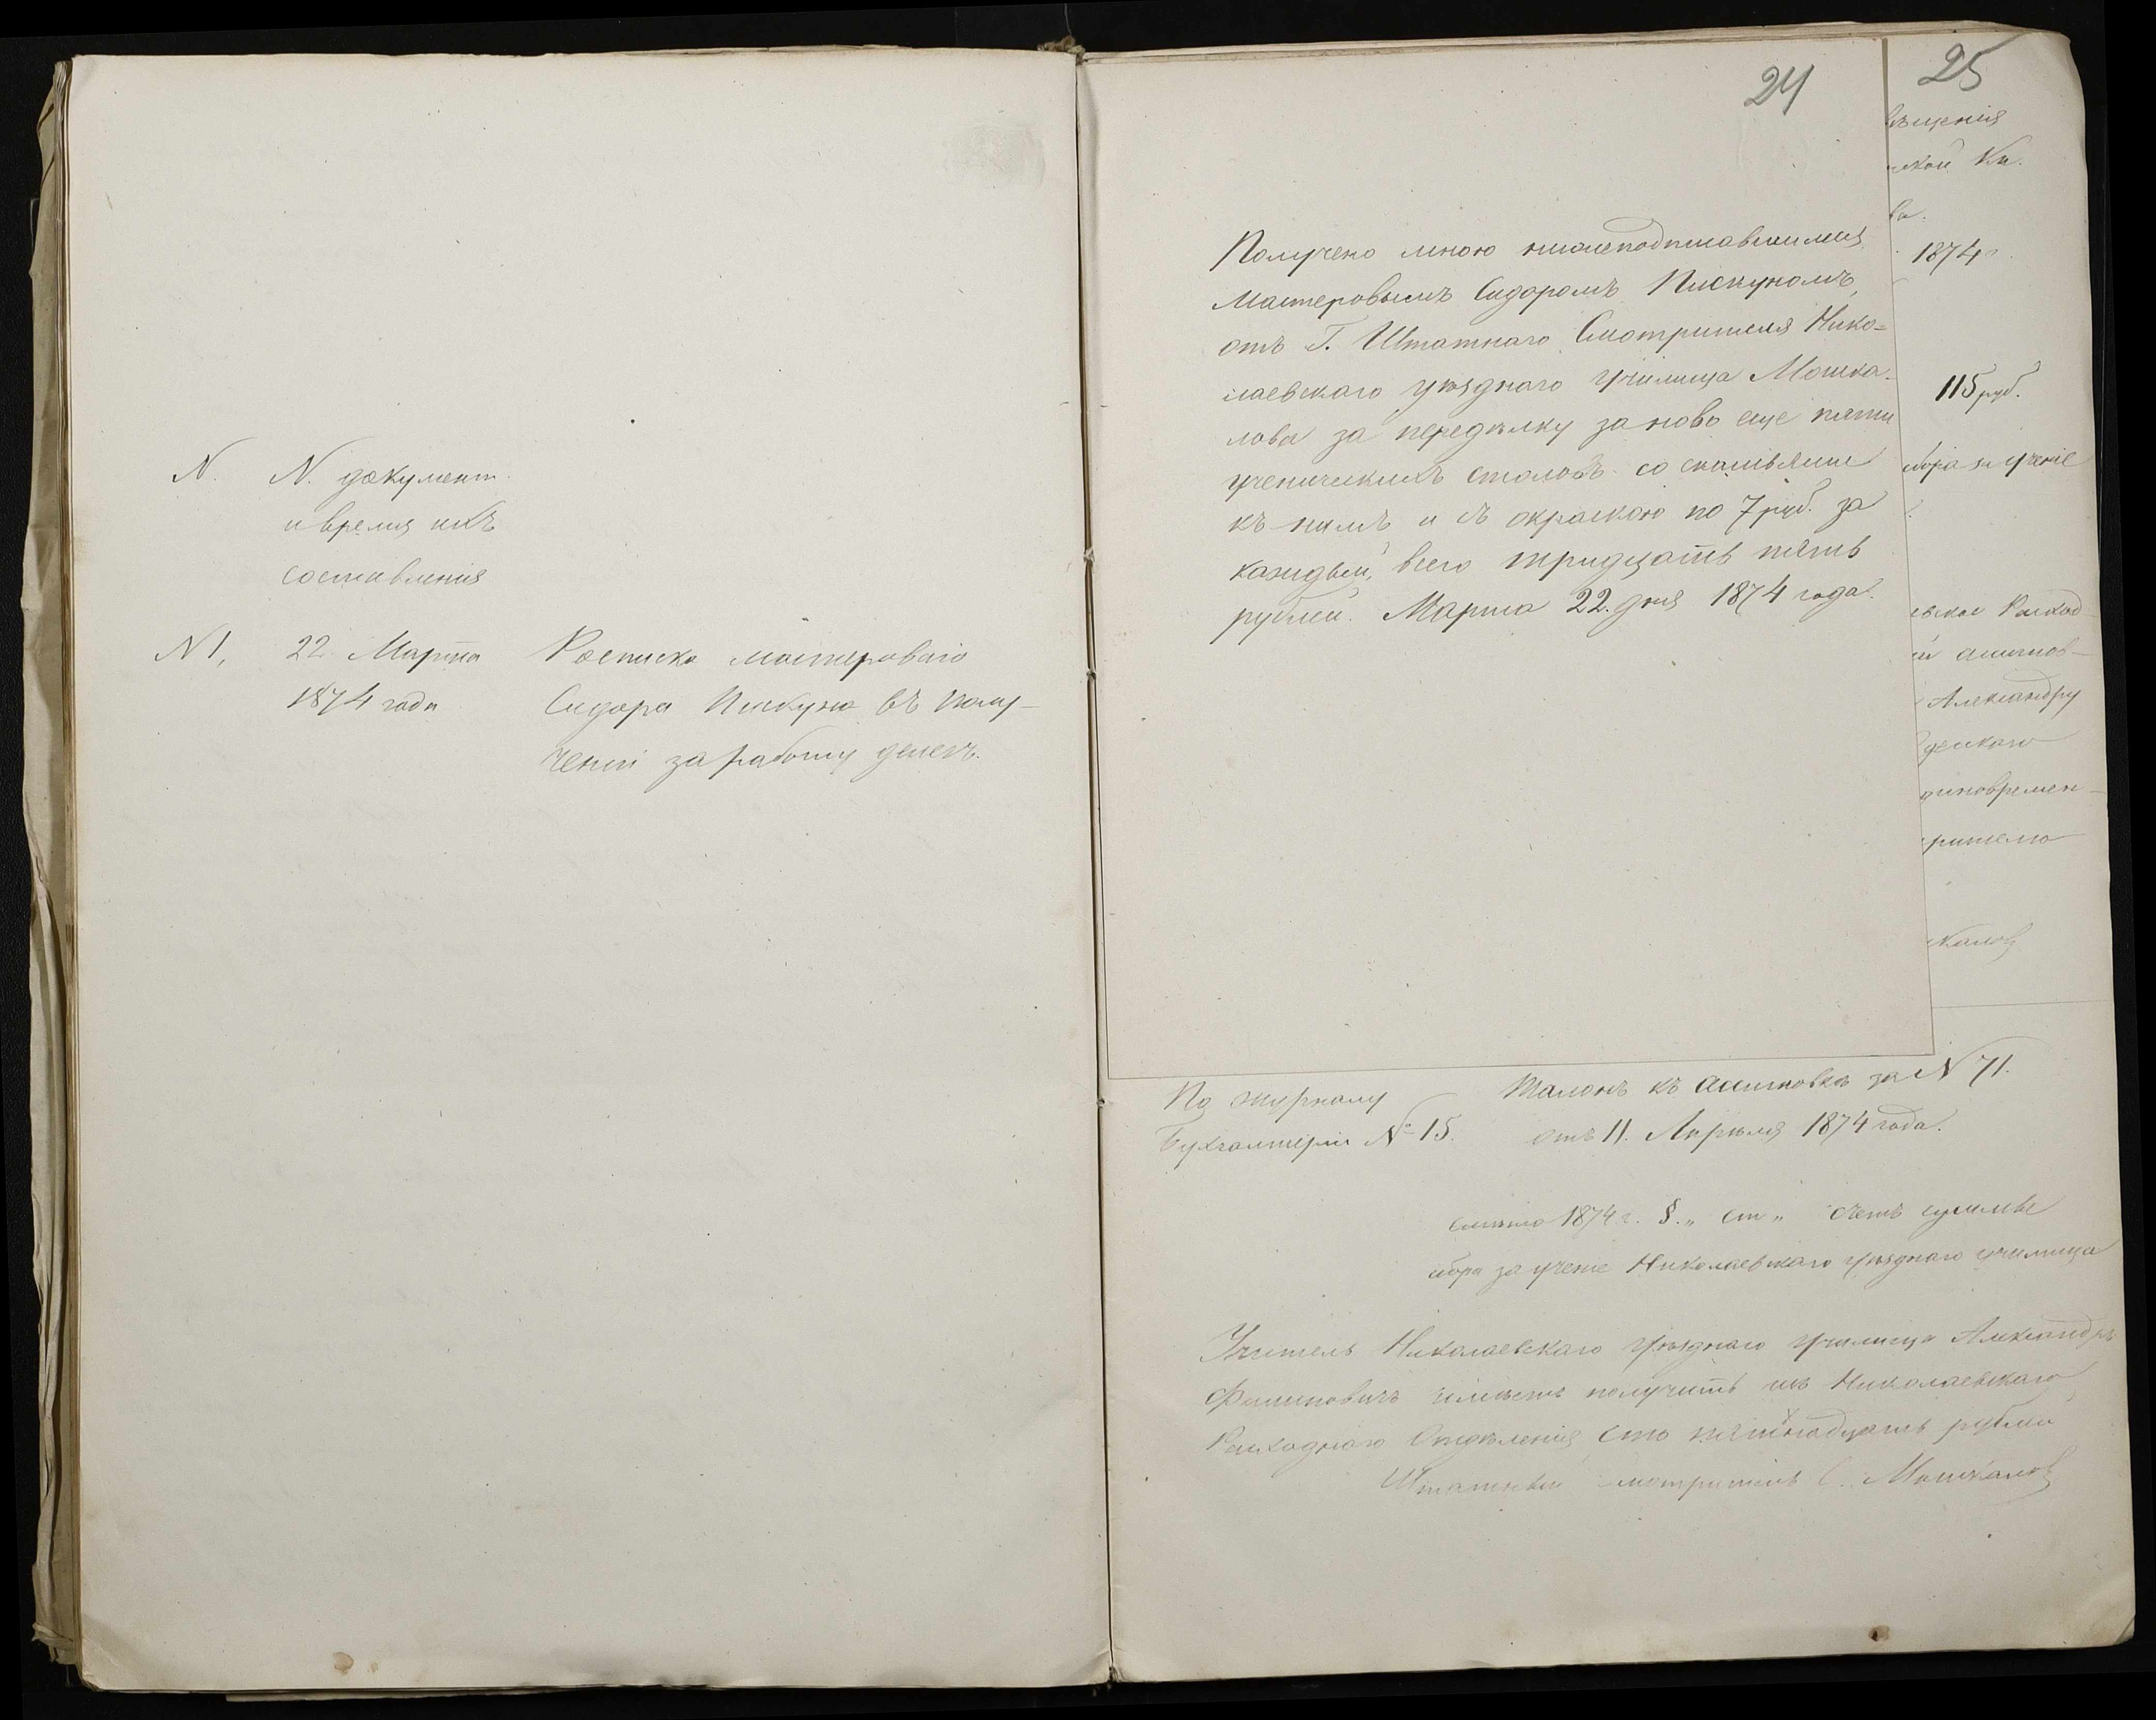 N. N. документ.
и время ихъ
составления
N 1, 22 Марта Росписка мастероваго
1874 года Сидора Пискуна въ полу-
ченіи за работу денегъ.
24
Получено мною нижеподписавшимся
Мастеровымъ Сидоромъ Пискуномъ,
отъ Г. Штатнаго Смотрителя Нико=
лаевскаго уѣзднаго училища Мошка-
лова за передѣлку заново еще пяти
ученическихъ столовъ со скамьями
къ нимъ и съ окраскою по 7 руб. за
каждый, всего тридцать пять
рублей. Марта 22. дня 1874 года.
25
вѣщенія
ской Ка.
ва.
1874 г.
115 руб.
сбора за ученіе
евское Расход
й ассигнов-
Александру
дескаго
диновремен-
рителю
калов
По журналу
Бухгалтеріи № 15.
Талонъ къ ассигновкѣ за N 71.
отъ 11. Апрѣля 1874 года.
смѣта 1874 г. §. „ ст „ счетъ суммы
сбора за ученіе Николаевскаго уѣзднаго училища
Учитель Николаевскаго уѣзднаго училища Александръ
имѣетъ получить изъ Николаевскаго
Расходнаго Отдѣленія сто пятнадцать рублей
Штатный смотритель С. Мошкалов